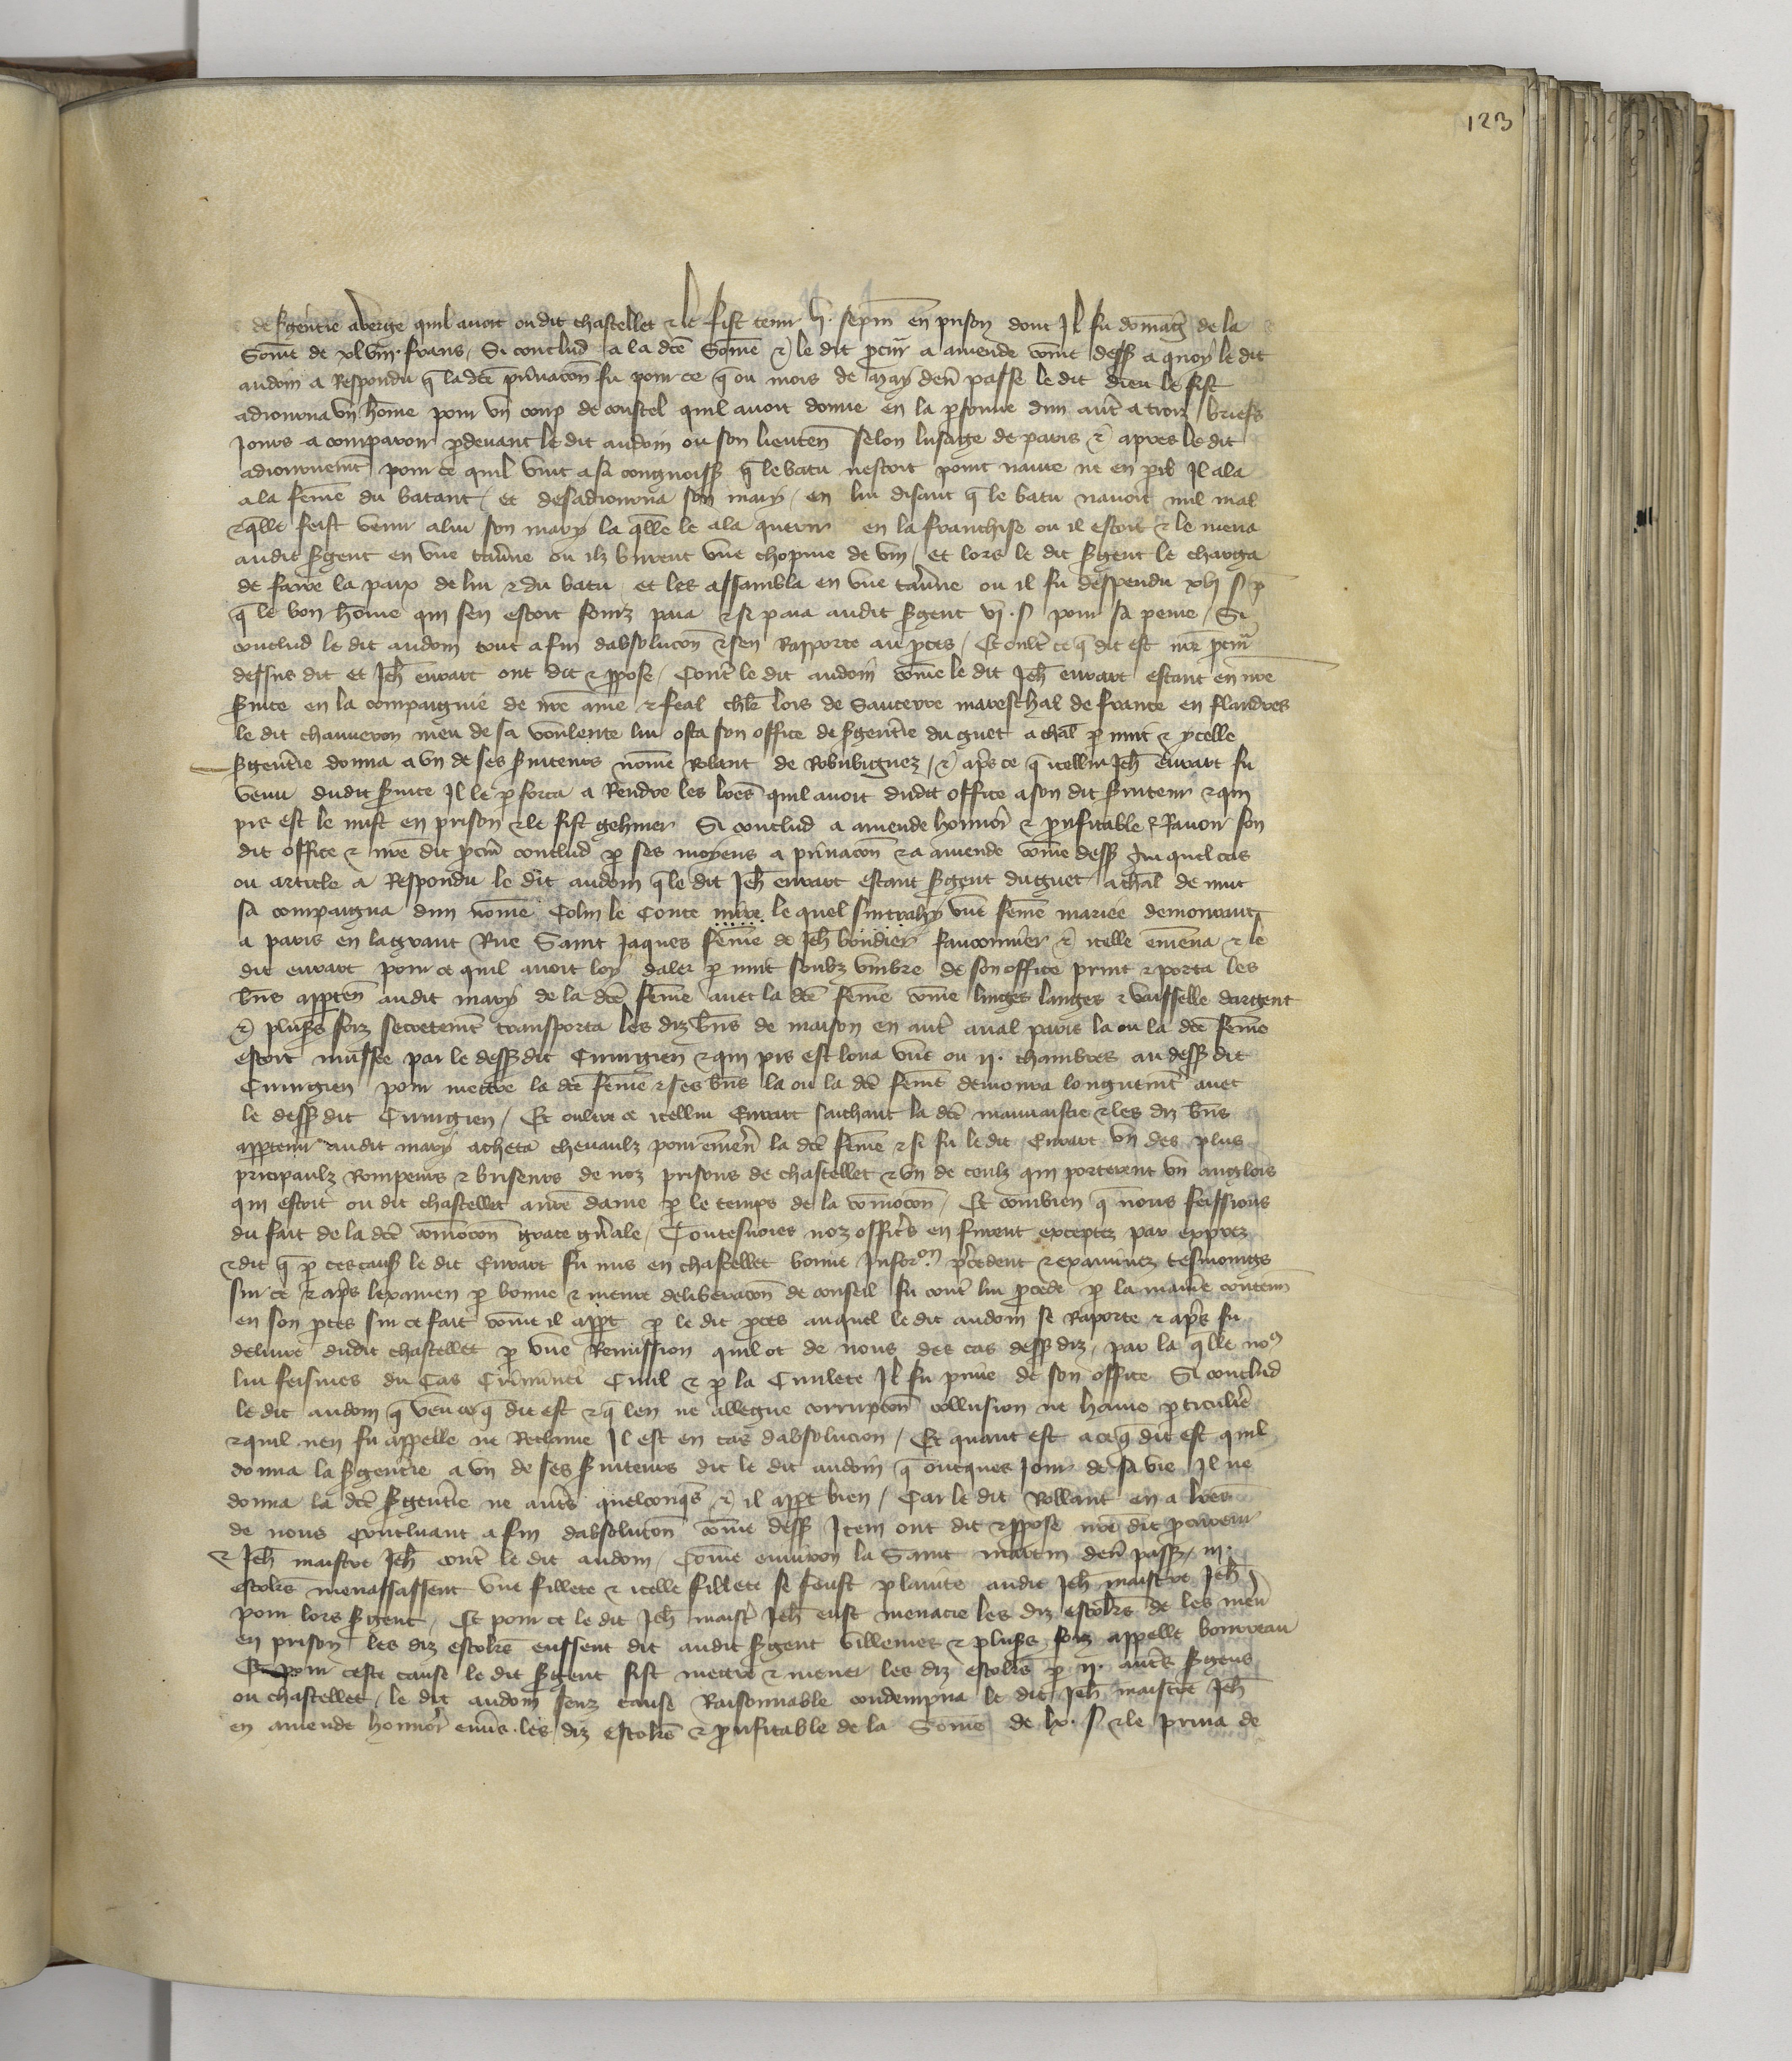 123
de sgentie a verge quil avoit oudit chastellet & le fist tenir h. sepm̄ en prison dont Il fu domag̃ de la
Som̄e de xlviij. frans / Si conclud a la dcē Som̄e & le dit pcur̄ a amende cōme dess a quoy le dit
audoin a Respondu q̄ la dcē privacōn fu pour ce q̄ ou mois de may den̄ passe le dit dieu le fist
adiourna vn hom̄e pour vn coup de coustel quil avoit donne en la psonne dun aut̄ a trois briefs
Jours a comparoir pdevant le dit audoin ou son lieuten̄ selon lusage de paris & apres le dit
adiournemt̄ pour ce quil vint a sa congnoiss q̄ le batu nestoit point navre ne en pil Il ala
a la fem̄e du batant / et desadiourna son mary / en lui disant q̄ le batu navoit nul mal
& qlle feist venir a lui son mary la qlle le ala querir en la franchise ou il estoit & le mena
audit sgent en vne tav̄ne ou ilz burent vne chopine de vin / et lors le dit sgent le charga
de faire la paix de lui & du batu et les assambla en vne tav̄ne ou il fu despendu xlj s p
q̄ le bon hom̄e qui sen estoit fouiz paia & si paia audit sgent vj. s pour sa peine / Si
conclud le dit audoin tout a fin dabsolucōn & sen Rapporte au pces / Et oult̄ ce q̄ dit est nr̄e pcur̄
dessus dit et Jeh̄ euvart ont dit & ppose / Cont̄ le dit audoin cōme le dit Jeh̄ euvart estant en nr̄e
s̄vice en la compaignie de nr̄e ame & feal chl̄r lois de Sancerre mareschal de france en flandres
le dit chauveron meu de sa voulente lui osta son office de sgentie du guet a chal̄ p nuit & ycelle
sgentie donna a vn de ses s̄viteurs nom̄e Rolant de Robubignez / & ap̄s ce q̄ icellui Jeh̄ euvart fu
venu dudit s̄vice Il le pforca a Rendre les lr̄es quil avoit dudit office a son dit s̄viteur & qui
pis est le mist en prison & le fist gehiner Si conclud a amende honnor̄ & pufitable & Ravoir son
dit office & nr̄e dit pcur̄ conclud p ses moyens a privacōn & a amende cōme dess Au quel cas
ou article a Respondu le dit audoin q̄ le dit Jeh̄ euvart estant sgent du guet a chal̄ de nuit
sa compaigna dun nom̄e Colin le Conte mire le quel sintrahy vne fem̄e mariee demourant
a paris en la grant Rue Saint Jaques fem̄e de Jeh̄ boudier fauconnier & icelle em̄ena & le
dit euvart pour ce quil avoit loy daler p nuit soubz vmbre de son office print & porta les
bn̄s apprten̄ audit mary de la dcē fem̄e avec la dcē fem̄e cōme linges langes & vaisselle dargent
& pluss foiz secretemt̄ transporta les diz bn̄s de maison en aut̄ aval paris la ou la dcē fem̄e
estoit mussee par le dess dit Cirurgien & qui pis est loua vne ou ij. chambres au dess dit
Cirurgien pour mettre la dcē fem̄e & ses bn̄s la ou la dcē fem̄e demoura longuemt̄ avec
le dess dit Cirurgien / Et oultre ce icellui Euvart sachant la dcē mauvaistie & les diz bn̄s
apprtenir audit mary acheta chevaulx pour em̄en̄ la dcē fem̄e & si fu le dit Euvart vn des plus
pricipaulx Rompeurs & briseurs de noz prisons de chastellet & vn de ceulx qui porterent vn anglois
qui estoit ou dit chastellet a nr̄e dame p le temps de la cōmocōn / Et combien q̄ nous feissions
du fait de la dcē cōmocōn grace gn̄ale / Toutesvoies noz offic̄s en furent exceptez par exprez
& dit q̄ p ces caus le dit Euvart fu mis en chastellet bonne Infor.on pcedent & examinez tesmoings
sur ce & ap̄s lexamen p bonne & meure deliberacōn de conseil fu cont̄ lui pcede p la manie conten̄
en son pces sur ce fait cōme il appt p le dit pces auquel le dit audoin se Raporte & ap̄s fu
delivre dudit chastellet p vne Remission quil ot de nous des cas dess diz / par la qlle no9
lui feismes du Cas Criminel Civil & p la Civilete Il fu prive de son office Si conclud
le dit audoin q̄ veu ce q̄ dit est & q̄ len ne allegue corrupcōn collusion ne haine pticulie
& quil nen fu appelle ne Reclame Il est en cas dabsolucion / Et quant est a ce q̄ dit est quil
donna la sgentie a vn de ses s̄viteurs dit le dit audoin q̄ oncques Jour de sa vie Il ne
donna la dcē sgentie ne aut̄s quelconqs & il appt bien / Car le dit Rollant en a lr̄es
de nous concluant a fin dabsolucōn cōme dess Item ont dit & ppose nr̄e dit procureur
& Jeh̄ maistre Jeh̄ cont̄ le dit audoin / Cōme environ la Saint martin den̄ pass / iij.
escolrs menassassent vne fillete & icelle fillete se feust plainte audit Jeh̄ maistre Jeh̄
pour lors sgent / Et pour ce le dit Jeh̄ maistr̄ Jeh̄ eust menacie les diz escolrs de les men̄
en prison les diz escolrs eussent dit audit sgent villenies & pluss foiz appelle bourreau
Et pour ceste cause le dit sgent fist mectre & mener les diz escolrs p ij. aut̄s sgens
ou chastellet / le dit audoin senz cause Raisonnable condempna le dit Jeh̄ maistre Jeh̄
en amende honnor̄ env̄s les diz escolrs & pufitable de la Som̄e de lx. s & le priva de